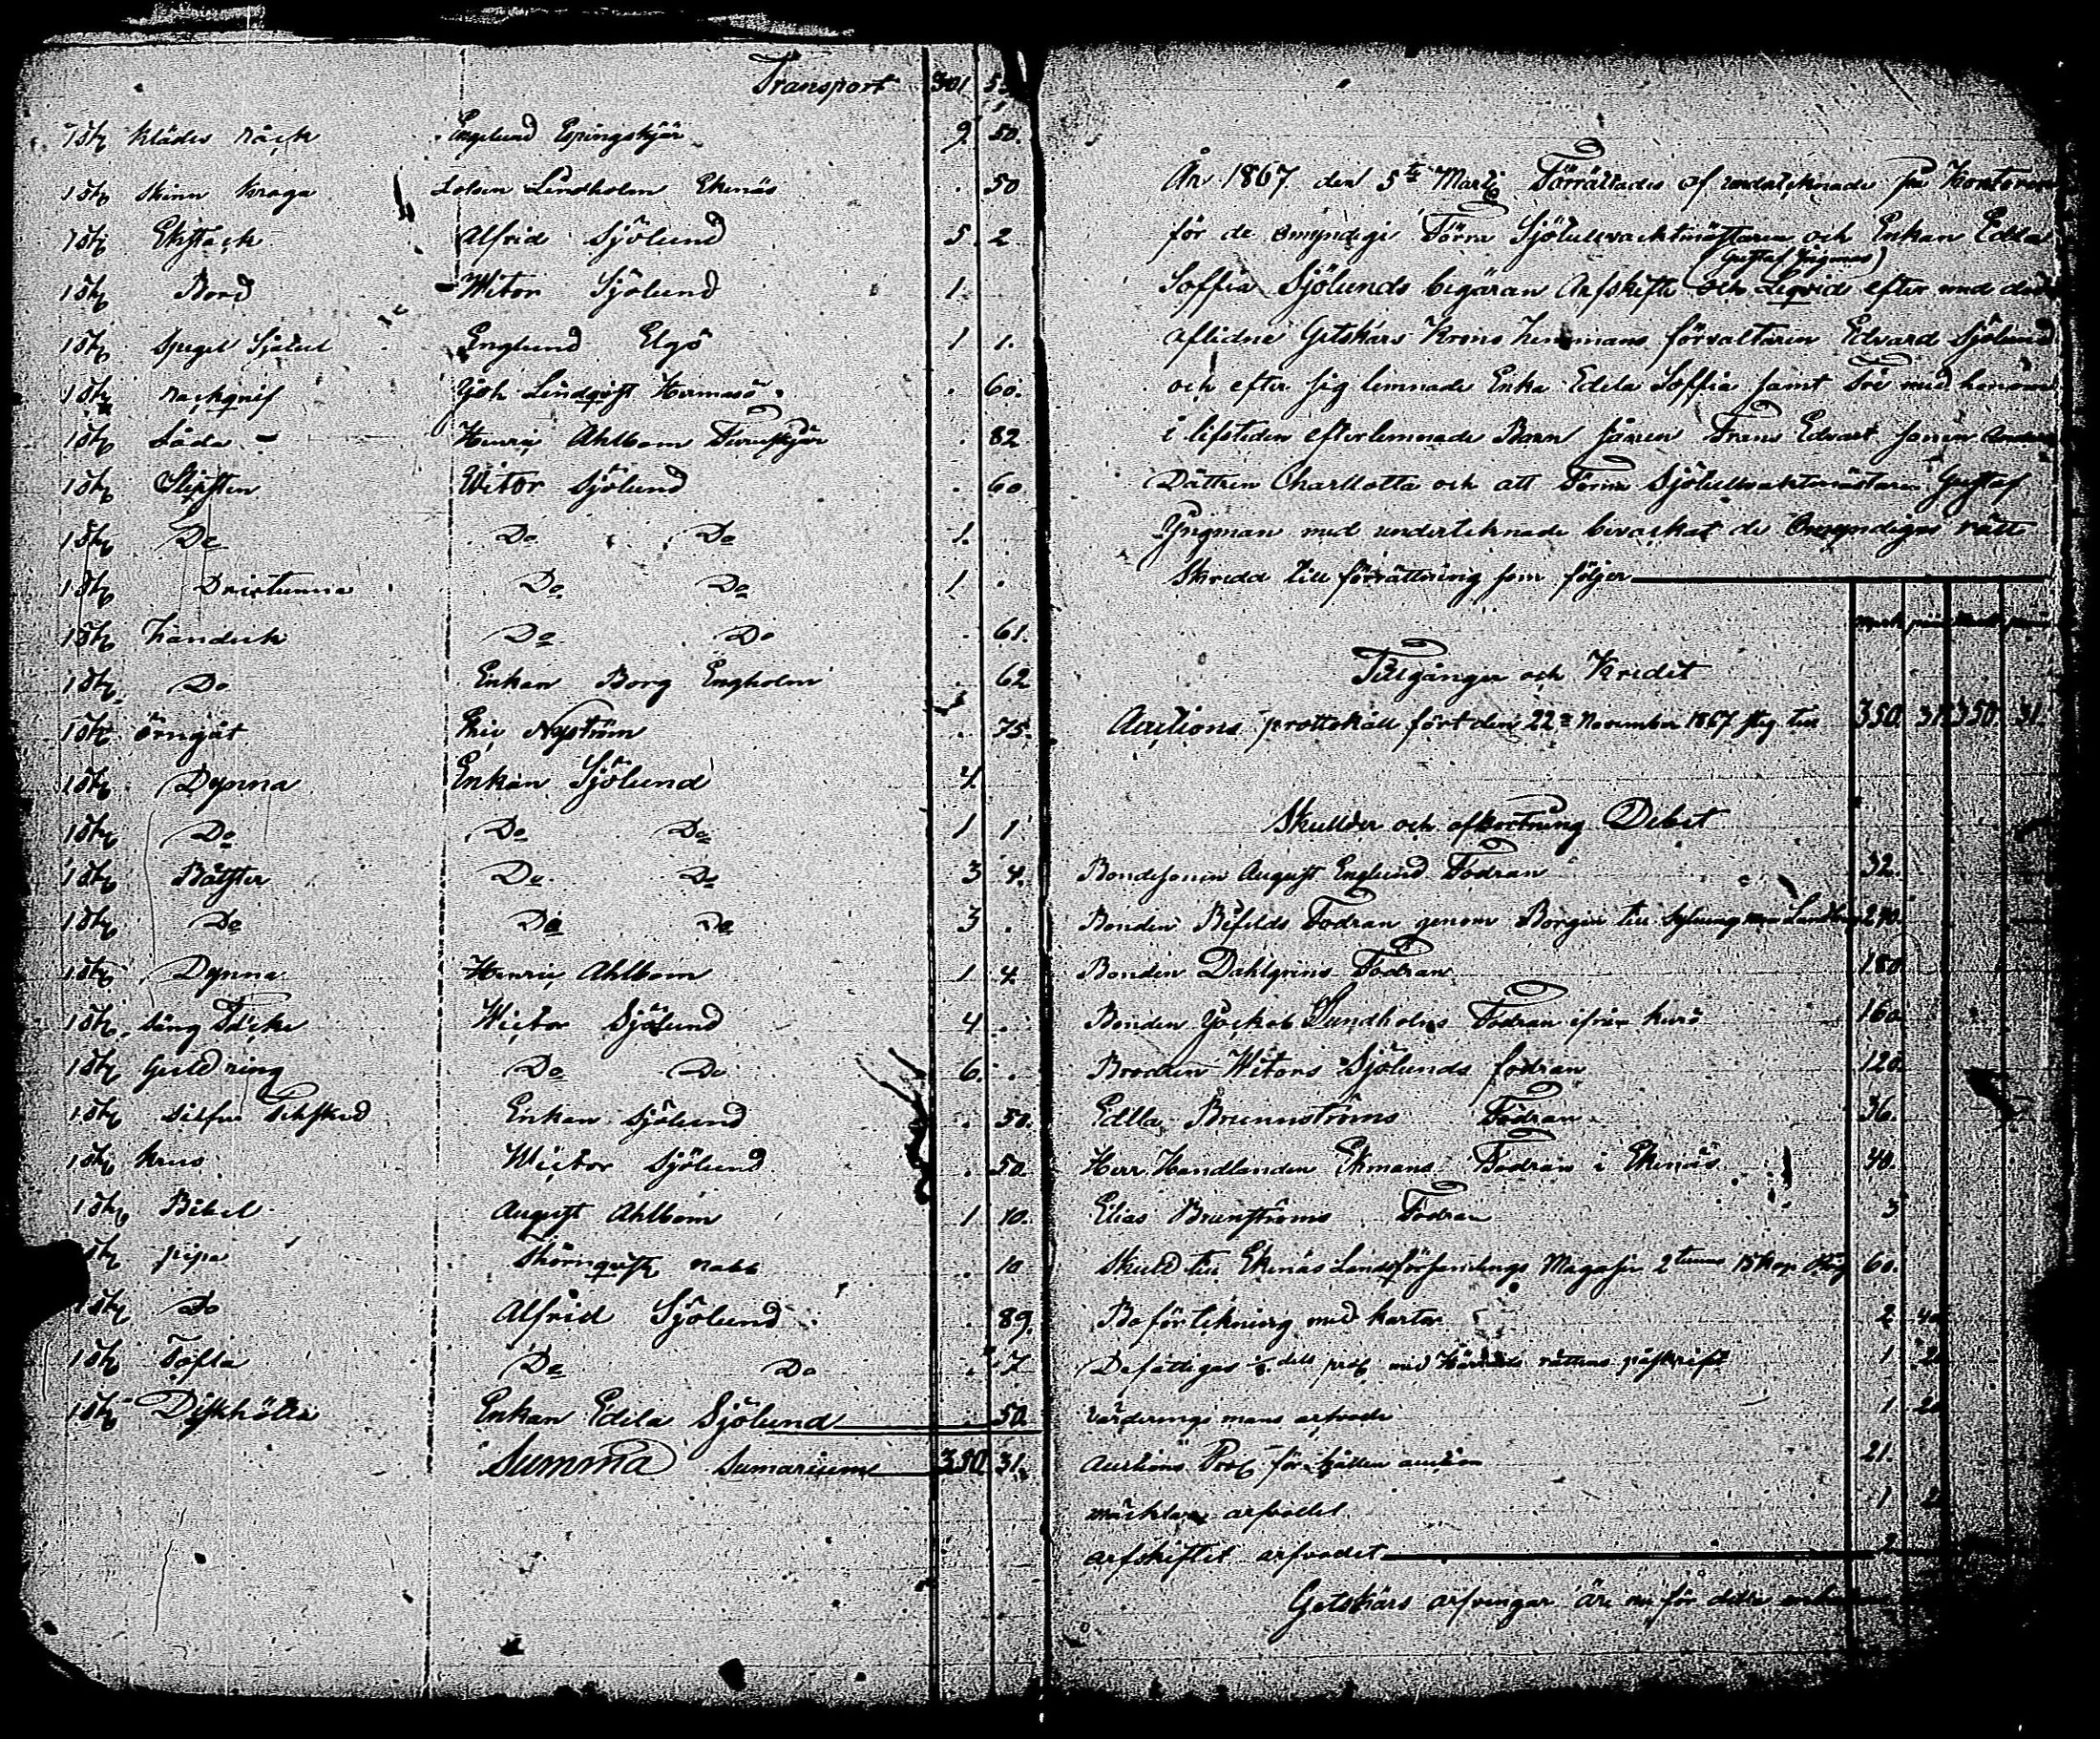 Transport 301 5
1 Stk Klädes råck Engelund Espingskjär 9. 50.
1 Stk Skinn Kraga Lotsen Lindholm Ekenäs . 50
1 Stk Ekstock Alfrid Sjölund 5. 2
1 Stk Bord Witor Sjölund 1.
1 Stk Spegel Englund Elgö 1 1.
1 Stk rackqnif Joh Lindqvist Hermasö . 60.
1 Stk Låda Henric Ahlbom . 82
1 Stk Slipsten Witor Sjölund . 60
1 Stk Do Do Do 1.
1 Stk Do Do 1 .
1 Stk Do Do . 61.
1 Stk Do Enkan Borg Engholm . 62
1 Stk örngåt Eric Nyström . 75.
1 Stk Dynna Enkan Sjölund 4.
1 Stk Do Do Do 1 1
1 Stk Båtster Do Do 3 4.
1 Stk Do Do Do 3 .
1 Stk Dynna Henric Ahlbom 1 4
1 Stk säng Täcke Wictor Sjölund 4 .
1 Stk Guld ring Do Do 6. .
1 Stk silfver Teskked Enkan Sjölund . 50.
1 Stk Krus Wictor Sjölund . 50
1 Stk Bibel August Ahlbom 1 10.
Stk pipa nabb . 10
1 Stk Do Alfrid Sjölund . 89.
1 Stk Tofla Do Do . 7
1 Stk Enkan Edela Sjölund . 50
Summa Sumarium 350 31.
År 1867 den 5te Martii Förrättades af underteknade på
för de omyndige Förra Sjötullvacktmästaren och Enkan Edla
(Gustaf Yngman)
Soffia Sjölunds begäran Arfskifte och Liqvid efter med
aflidne Getskärs Krono hemmans förvaltaren Edvard Sjölund
och efter sig lemnade Enka Edela Soffia samt Tre med honom
i lifstiden efterlemnade Barn sonen Frans Edvart sonen
Dåttren Charllotta och att Förra Sjötullvaktmästaren Gustaf
Yngman med underteknade bevackat de Omyndigas rätt
Skredd till förrättning som följer
Tillgångar och Kredit
Auctions prottokåll fört den 22a November 1867 steg till 350 31 350 31.
Skullder och afkortning Debet
Bondesonen August Englund Fodran 32.
Bonden Fodran genom Borgen till 290.
Bonden Dahlgrens Fodran 180
Bonden Jockob Sundholms Fodran ifrån 160
Brodren Witors Sjölunds fodran 120.
Edlla Brunnströms Fodran 36.
Herr Handlanden Ekmans Fodran i Ekenäs 40.
Elias Brunströms Fodran 3
Skuld till Ekenäs Landsförsamlings Magasin 2 tunnor 15 kap Råg 60.
Bo förtekning med kartor 2 40
Defattigas dels med Härrads rättens påskrift 1
Värderings mans arfvode 1
Auctions för hållen auction 21.
arfvodet 1
arfskiftet arfvodet 2
Getskärs arfvingar äre nu för detta